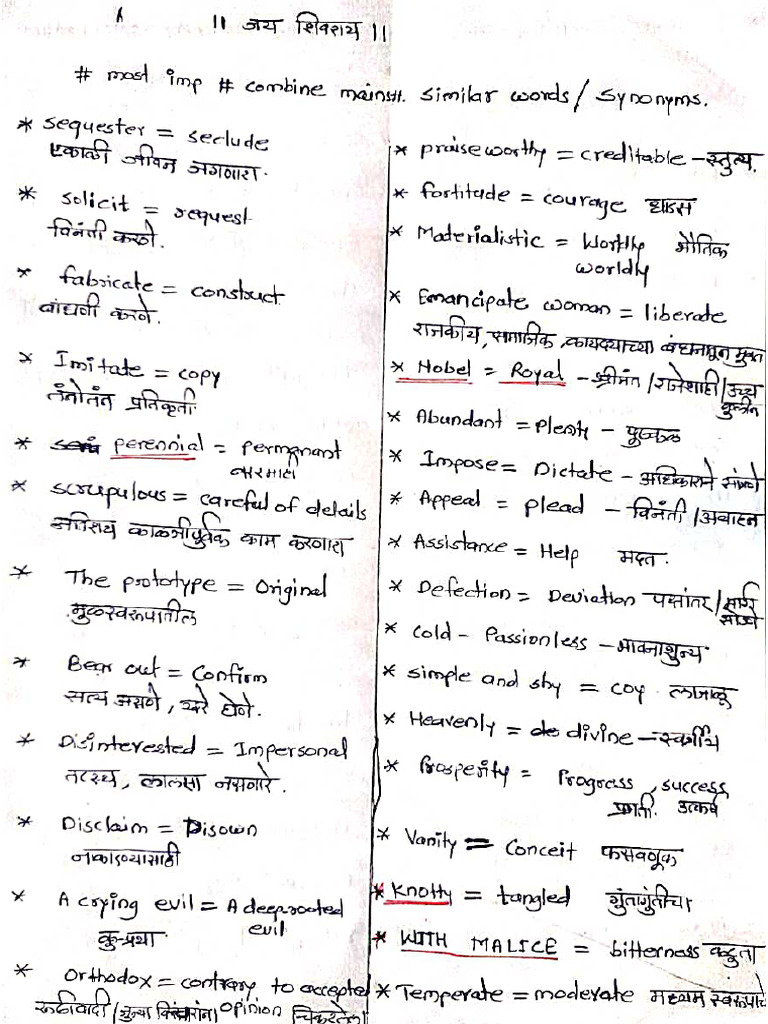 || जय शिवराय ||
# most imp # combine mains. similar words / synonyms.
* sequester = seclude
एकाकी जीवन जगणारा.
* solicit = request
विनंती करणे.
* fabricate = construct
बांधणी करणे.
* Imitate = copy
तंतोतंत प्रतिकृती
* perennial = permanant
बारमाही
* scrupulous = careful of details
अतिशय काळजीपूर्वक काम करणारा
* The prototype = Original
मुळस्वरूपातील
* Bear out = Confirm
सत्य असणे, खरे होणे.
* Disinterested = Impersonal
तटस्थ, लालसा नसणारे.
* Disclaim = Disown
नाकारण्यासाठी
* A crying evil = A deeprooted
evil
कु-प्रथा
* Orthodox = contrary to accepted
रूढीवादी / जुन्या opinion
* praiseworthy = creditable - स्तुत्य.
* fortitude = courage धाडस
* Materialistic = Worldly भौतिक
worldly
* Emancipate woman = liberate
राजकीय, सामाजिक, कायद्याच्या बंधनातून मुक्त
* Nobel = Royal - श्रीमंत / राजेशाही / उच्च
कुलीन
* Abundant = Plenty - पुष्कळ
* Impose = Dictate - अधिकाराने सांगणे
* Appeal = plead - विनंती / आवाहन
* Assistance = Help मदत.
* Defection = Deviation पक्षांतर / मार्ग
सोडणे
* cold - Passionless - भावनाशुन्य
* simple and shy = coy लाजाळू
* Heavenly = divine - स्वर्गीय
* Prosperity = Progress, success
प्रगती. उत्कर्ष
* Vanity = conceit फसवणूक
* Knotty = tangled गुंतागुंतीचा
* WITH MALICE = bitterness कटुता
* Temperate = moderate मध्यम